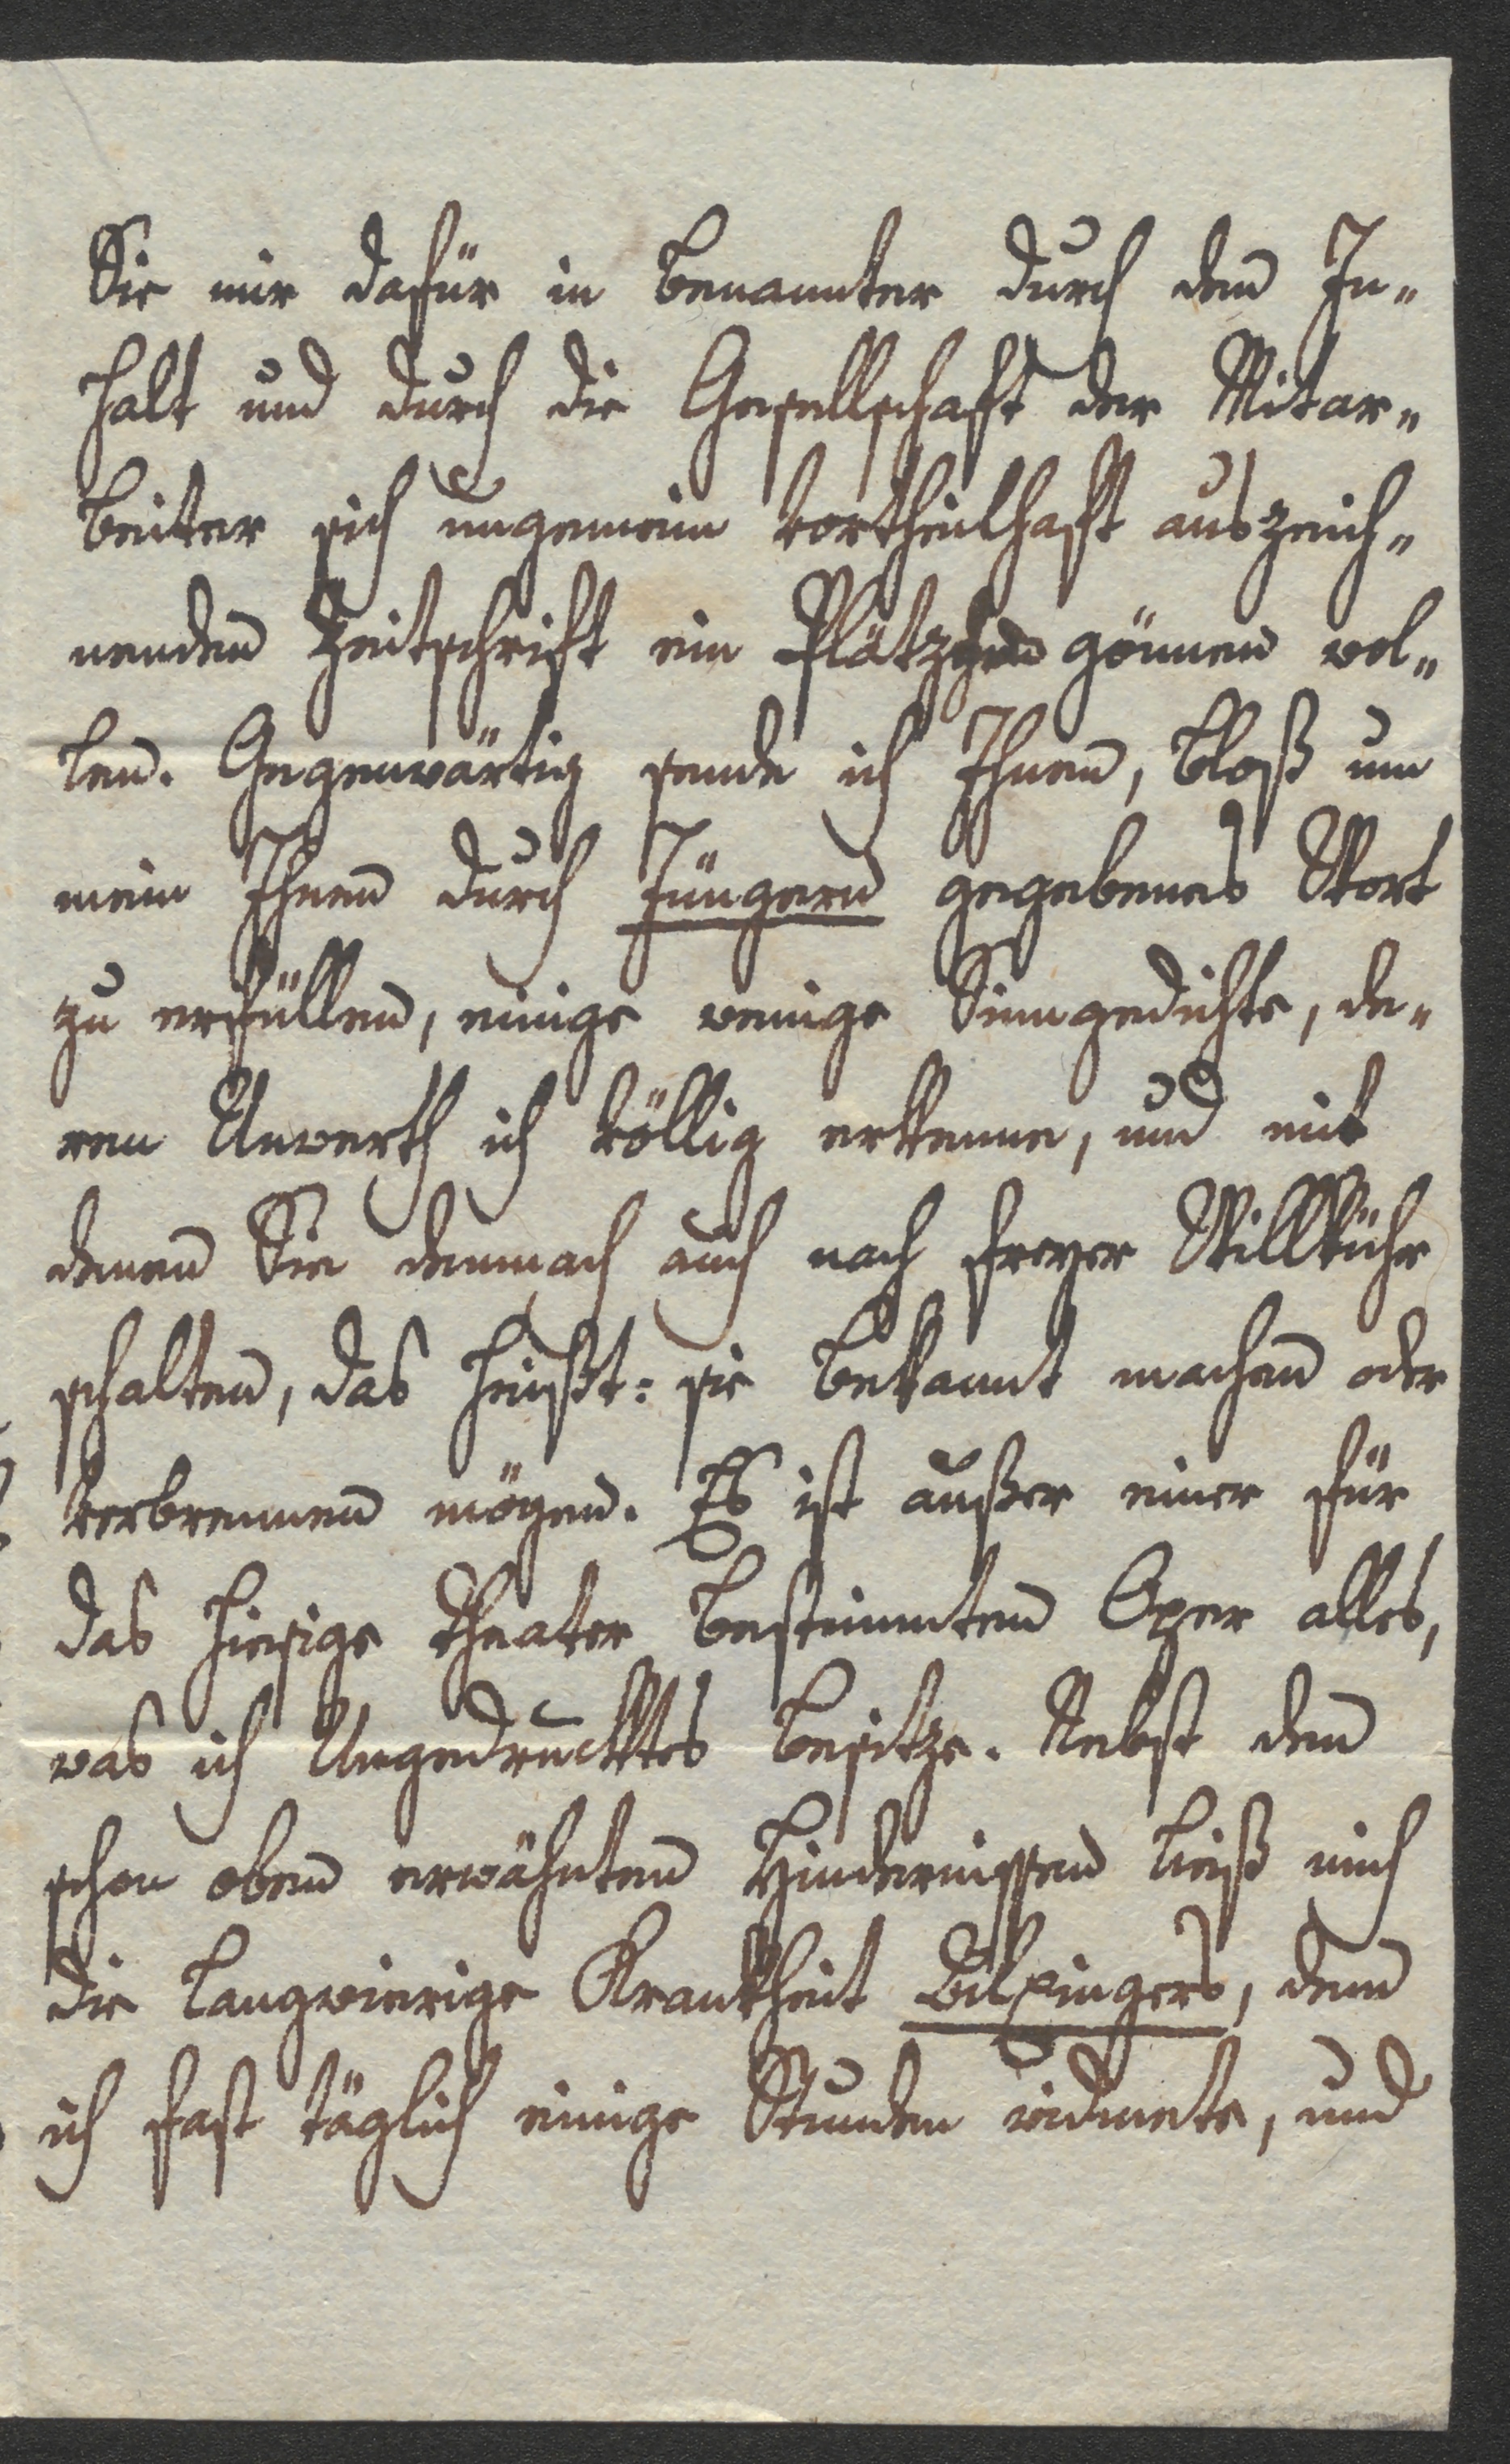 Sie mir dafür in benannter durch den In„
halt und durch die Gesellschaft der Mitar„
beiter sich ungemein vortheilhaft auszeich„
nenden Zeitschrift ein Plätzchen gönnen wol„
len. Gegenwärtig sende ich Ihnen, bloß um
mein Ihnen durch Jüngern gegebenes Wort
zu erfüllen, einige wenige Sinngedichte, de„
ren Unwerth ich völlig erkenne, und mit
denen Sie demnach auch nach freyer Willkühr
schalten, das heißt: sie bekannt machen oder
verbrennen mögen. Es ist außer einer für
das hiesige Theater bestimmten Oper alles,
was ich Ungedrucktes besitze. Nebst den
schon oben erwähnten Hindernissen ließ mich
die langwierige Krankheit Bilfingers, dem
ich fast täglich einige Stunden widmete, und